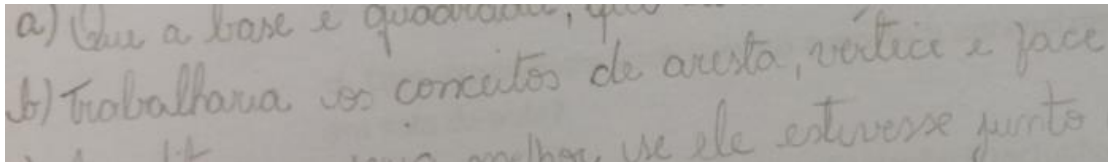 a) Que a base é quadrada,
b) Trabalharia os conceitos de aresta, vértice e face
melhor, se ele estivesse junto